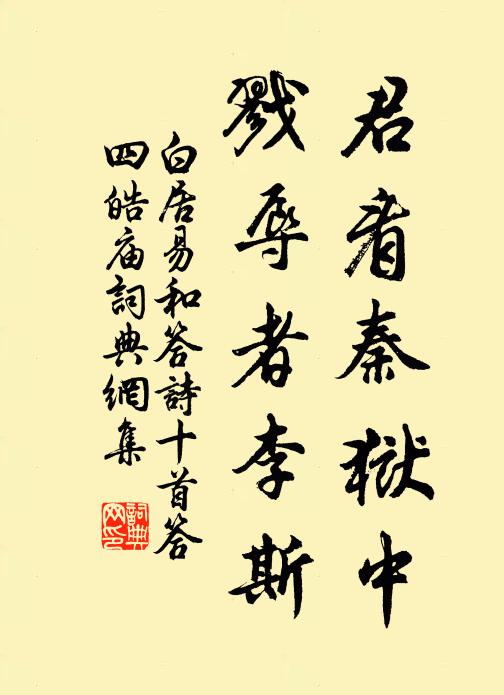 君看秦獄中
戮辱者李斯
白居易和答詩十首答
四皓庙詞典網集
詞典網印